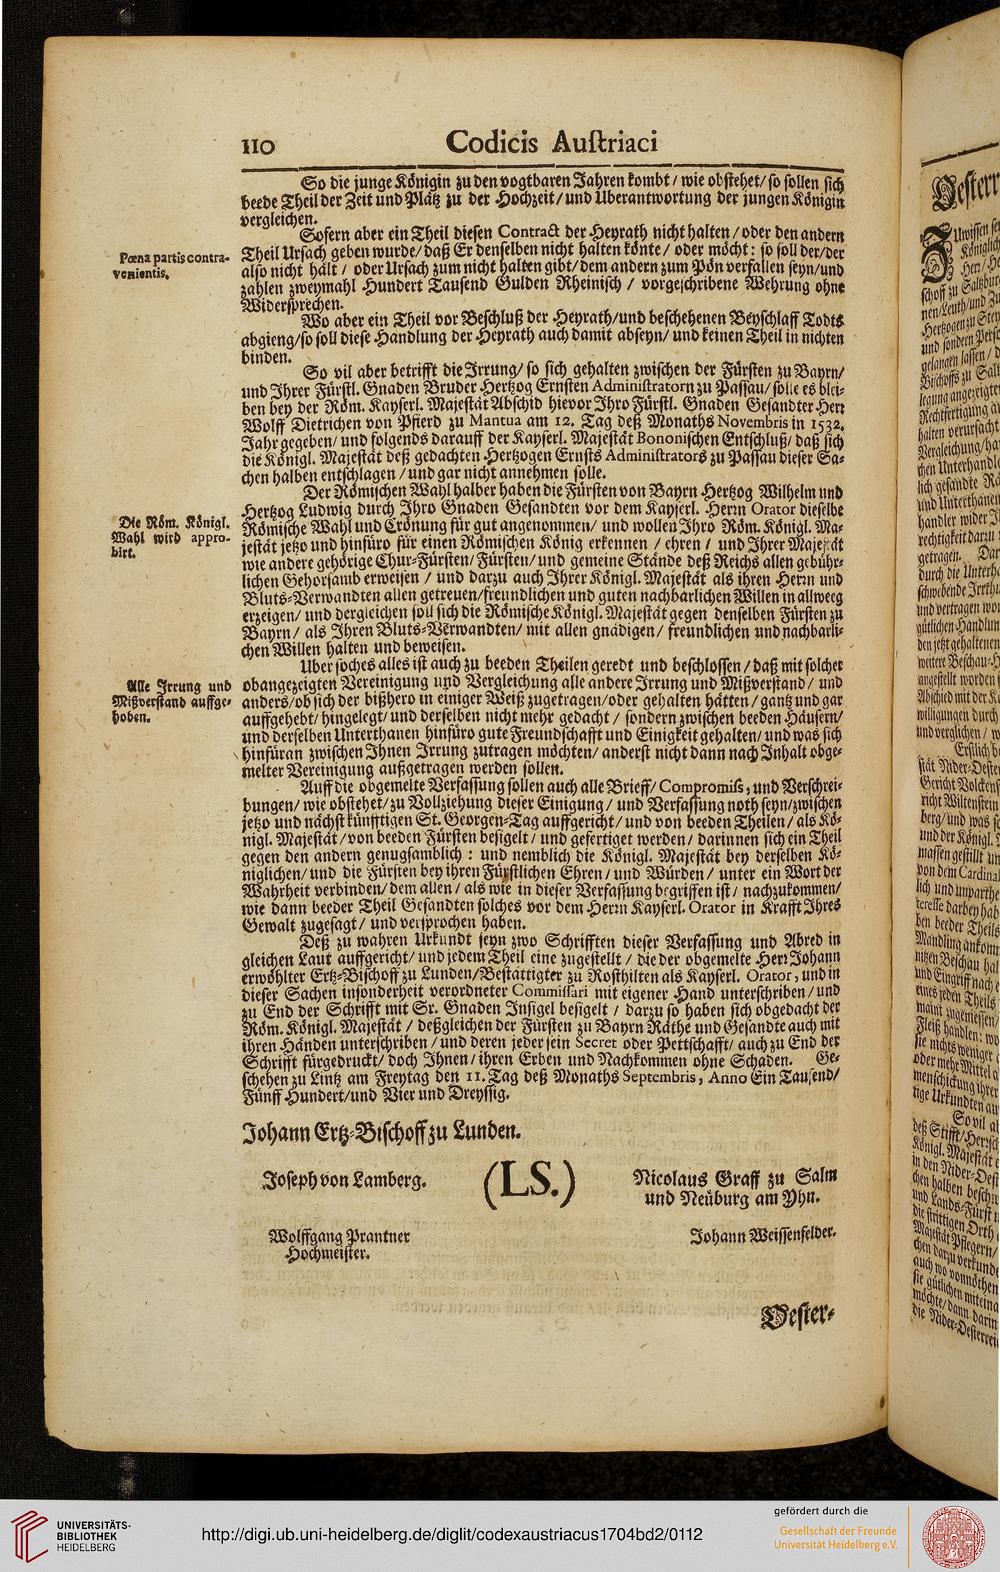 110 Codicis Austriaci
So die junge Königin zu den vogtbaren Jahren kombt / wie obstehet / so sollen sich
beede Theil der Zeit und Plätz zu der Hochzeit / und Uberantwortung der jungen Königin
vergleichen.
Sofern aber ein Theil diesen Contract der Heyrath nicht halten / oder den andern
Pœna partis contra-
venientis.
Theil Ursach geben wurde / daß Er denselben nicht halten könte / oder möcht : so soll der / der
also nicht hält / oder Ursach zum nicht halten gibt / dem andern zum Pön verfallen seyn / und
zahlen zweymahl Hundert Tausend Gulden Rheinisch / vorgeschribene Wehrung ohne
Widersprechen.
Wo aber ein Theil vor Beschluß der Heyrath / und beschehenen Beyschlaff Todts
abgieng / so soll diese Handlung der Heyrath auch damit abseyn / und keinen Theil in nichten
binden.
So vil aber betrifft die Irrung / so sich gehalten zwischen der Fürsten zu Bayrn /
und Ihrer Fürstl. Gnaden Bruder Hertzog Ernsten Administratorn zu Passau / solle es blei-
ben bey der Röm. Kayserl. Majestät Abschid hievor Ihro Fürstl. Gnaden Gesandter Herr
Wolff Dietrichen von Pfierd zu Mantua am 12. Tag deß Monaths Novembris in 1532.
Jahr gegeben / und folgends darauff der Kayserl. Majestät Bononischen Entschluß / daß sich
die Königl. Majestät deß gedachten Hertzogen Ernsts Administrators zu Passau dieser Sa-
chen halben entschlagen / und gar nicht annehmen solle.
Der Römischen Wahl halber haben die Fürsten von Bayrn Hertzog Wilhelm und
Die Röm. Königl.
Wahl wird appro-
birt.
Hertzog Ludwig durch Ihro Gnaden Gesandten vor dem Kayserl. Herrn Orator dieselbe
Römische Wahl und Crönung für gut angenommen / und wollen Ihro Röm. Königl. Ma-
jestät jetzo und hinfüro für einen Römischen König erkennen / ehren / und Ihrer Majestät
wie andere gehörige Chur-Fürsten / Fürsten / und gemeine Stände deß Reichs allen gebühr-
lichen Gehorsamb erweisen / und darzu auch Ihrer Königl. Majestät als ihren Herrn und
Bluts-Verwandten allen getreuen / freundlichen und guten nachbarlichen Willen in allweeg
erzeigen / und dergleichen soll sich die Römische Königl. Majestät gegen denselben Fürsten zu
Bayrn / als Ihren Bluts-Verwandten / mit allen gnädigen / freundlichen und nachbarli-
chen Willen halten und beweisen.
Uber soches alles ist auch zu beeden Theilen geredt und beschlossen / daß mit solcher
Alle Irrung und
Mißverstand auffge-
hoben.
obangezeigten Vereinigung und Vergleichung alle andere Irrung und Mißverstand / und
anders / ob sich der bißhero in einiger Weiß zugetragen / oder gehalten hätten / gantz und gar
auffgehebt / hingelegt / und derselben nicht mehr gedacht / sondern zwischen beeden Häusern /
und derselben Unterthanen hinfüro gute Freundschafft und Einigkeit gehalten / und was sich
hinfüran zwischen Ihnen Irrung zutragen möchten / anderst nicht dann nach Inhalt obge-
melter Vereinigung außgetragen werden sollen.
Auff die obgemelte Verfassung sollen auch alle Brieff / Compromiss, und Verschrei-
bungen / wie obstehet / zu Vollziehung dieser Einigung / und Verfassung noth seyn / zwischen
jetzo und nächst künfftigen St. Georgen-Tag auffgericht / und von beeden Theilen / als Kö-
nigl. Majestät / von beeden Fürsten besigelt / und gefertiget werden / darinnen sich ein Theil
gegen den andern genugsamblich : und nemblich die Königl. Majestät bey derselben Kö-
niglichen / und die Fürsten bey ihren Fürstlichen Ehren / und Würden / unter ein Wort der
Wahrheit verbinden / dem allen / als wie in dieser Verfassung begriffen ist / nachzukommen /
wie dann beeder Theil Gesandten solches vor dem Herrn Kayserl. Orator in Krafft Ihres
Gewalt zugesagt / und versprochen haben.
Deß zu wahren Urkundt seyn zwo Schrifften dieser Verfassung und Abred in
gleichen Laut auffgericht / und jedem Theil eine zugestellt / die der obgemelte Herr Johann
erwöhlter Ertz-Bischoff zu Lunden / Bestättigter zu Rosthilten als Kayserl. Orator, und in
dieser Sachen insonderheit verordneter Commissari mit eigener Hand unterschriben / und
zu End der Schrifft mit Sr. Gnaden Insigel besigelt / darzu so haben sich obgedacht der
Röm. Königl. Majestät / deßgleichen der Fürsten zu Bayrn Räthe und Gesandte auch mit
ihren Händen unterschriben / und deren jeder sein Secret oder Pettschafft / auch zu End der
Schrifft fürgedruckt / doch Ihnen / ihren Erben und Nachkommen ohne Schaden. Ge-
schehen zu Lintz am Freytag den 11. Tag deß Monaths Septembris, Anno Ein Tausend /
Fünff Hundert / und Vier und Dreyssig.
Johann Ertz-Bischoff zu Lunden.
Joseph von Lamberg. (LS.) Nicolaus Graff zu Salm
und Neuburg am Yhn.
Wolffgang Prantner
Hochmeister.
Johann Weissenfelder.
Oester-
UNIVERSITÄTS-
BIBLIOTHEK
HEIDELBERG
http://digi.ub.uni-heidelberg.de/diglit/codexaustriacus1704bd2/0112
gefördert durch die
Gesellschaft der Freunde
Universität Heidelberg e.V.